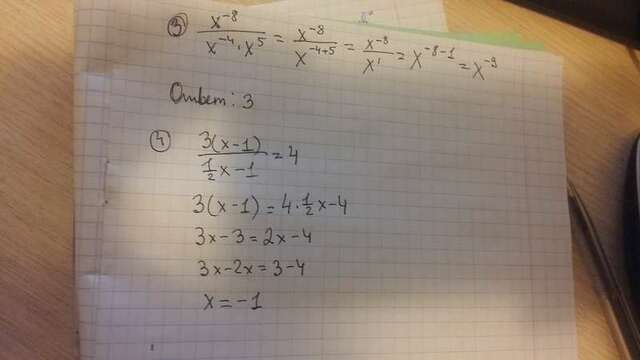 ③ x⁻⁸ / (x⁻⁴ · x⁵) = x⁻⁸ / x⁻⁴⁺⁵ = x⁻⁸ / x¹ = x⁻⁸⁻¹ = x⁻⁹
: 3
④ 3(x-1) / (½x-1) = 4
3(x-1) = 4·½x-4
3x-3 = 2x-4
3x-2x = 3-4
x = -1